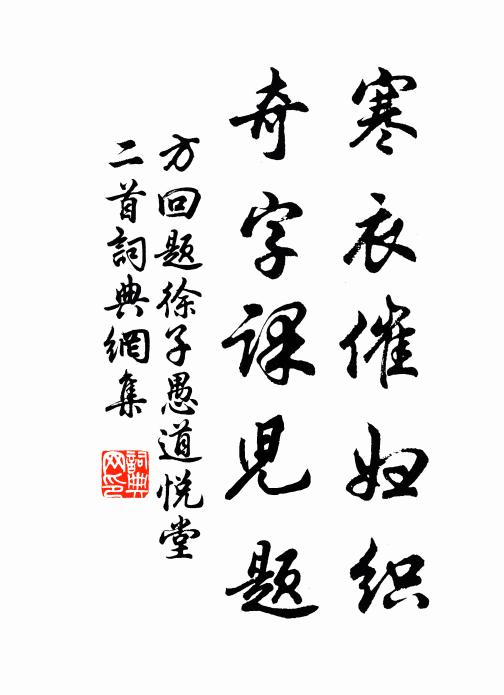 寒衣催妇织
奇字课児题
方回题徐子愚道悦堂
二首詞典網集
詞典
网印